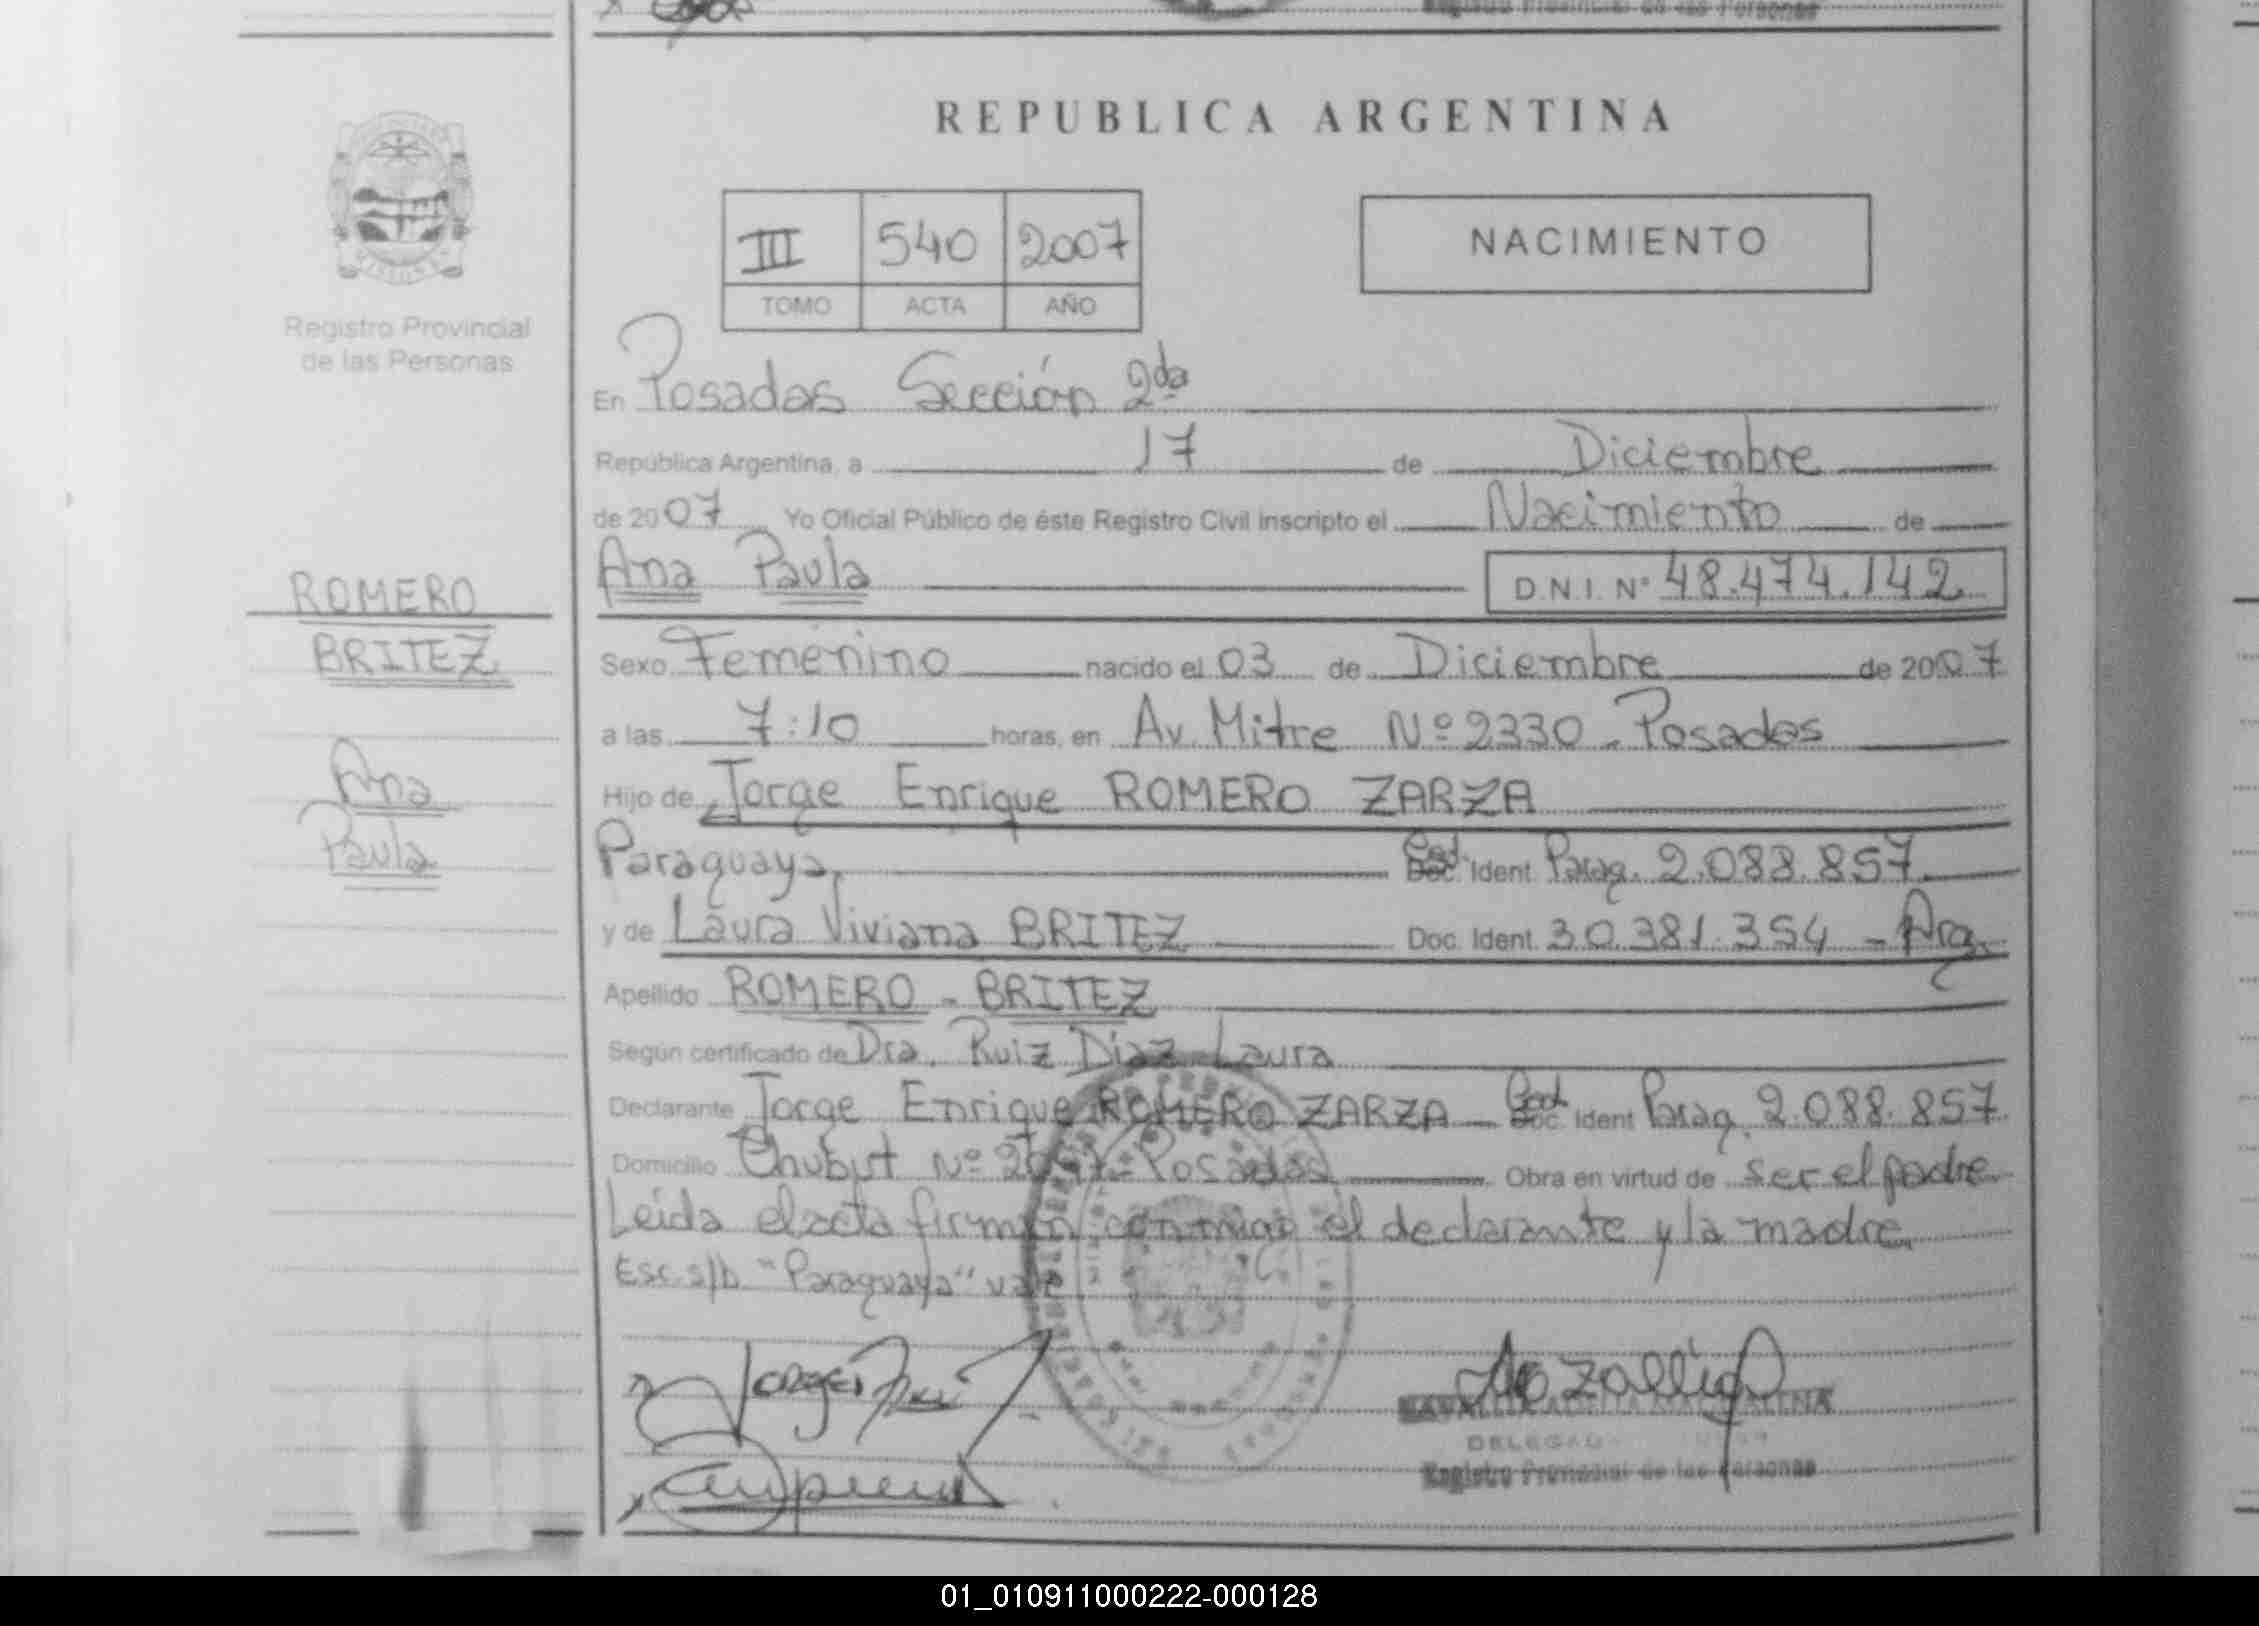 REPUBLICA ARGENTINA
III 540 2007
TOMO ACTA AÑO
NACIMIENTO
Registro Provincial
de las Personas
En Posadas Sección 2da
República Argentina, a 17 de Diciembre
de 2007 Yo Oficial Público de éste Registro Civil inscripto el Nacimiento de
Ana Paula D.N.I. Nº 48.474.142
ROMERO
BRITEZ
Ana
Paula
Sexo Femenino nacido el 03 de Diciembre de 2007
a las 7:10 horas, en Av. Mitre Nº 2330 - Posadas
Hijo de Jorge Enrique ROMERO ZARZA
Paraguaya Ced. Ident. Parag. 2.088.857
y de Laura Viviana BRITEZ Doc. Ident. 30.381.354 - Arg.
Apellido ROMERO - BRITEZ
Según certificado de Dra. Ruiz Diaz Laura
Declarante Jorge Enrique ROMERO ZARZA - Ced. Ident Parag. 2.088.857
Domicilio Chubut Nº - Posadas Obra en virtud de ser el padre
Leida el acta firman conmigo el declarante y la madre.
Esc. s/b "Paraguaya" vale
Registro Provincial de las Personas
01_010911000222-000128